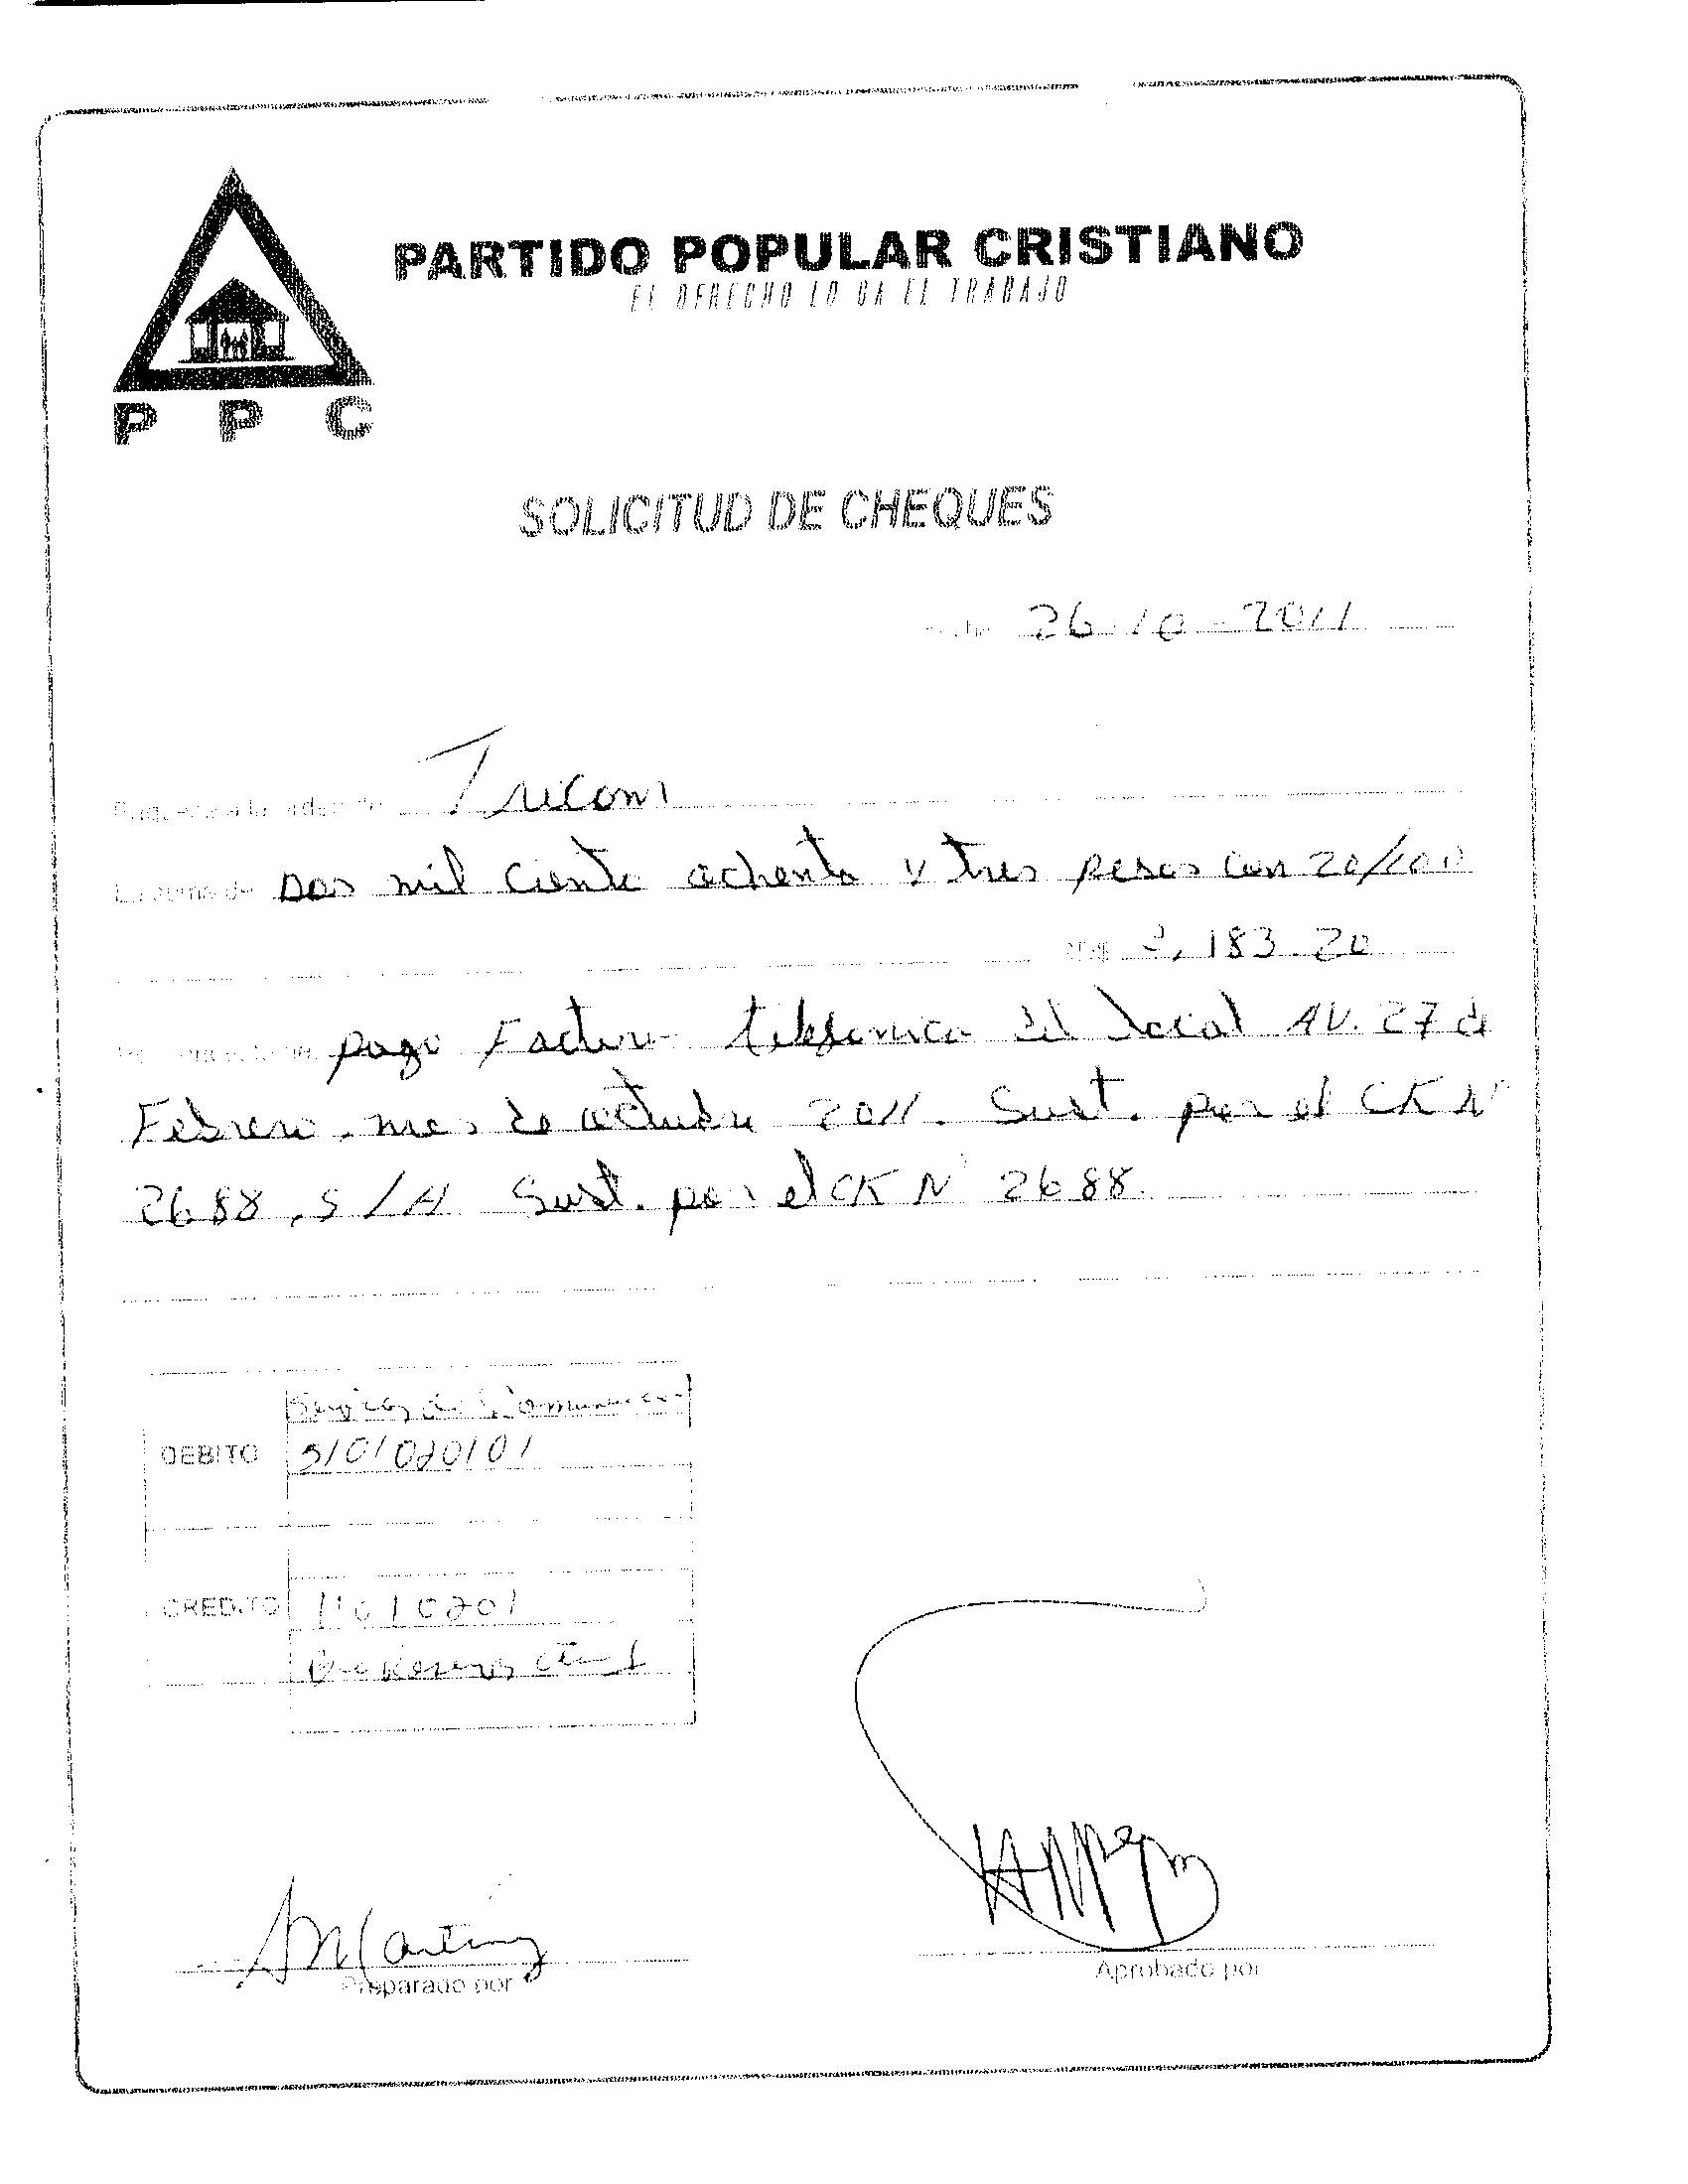 PARTIDO POPULAR CRISTIANO
EL DERECHO LO DA EL TRABAJO
P P C
SOLICITUD DE CHEQUES
26-10-2011
Páguese a la orden de Tricom
La suma de Dos mil ciento ochenta y tres pesos con 20/100
RD$ 2,183.20
pago Factura telefonica del local AV. 27 de
Febrero. mes de octubre 2011. Sust. por el CK N°
2688, S/A Sust. por el CK N° 2688.
Servicios de Comunicac
DEBITO 5101020101
CREDITO 11010201
Preparado por
Aprobado por